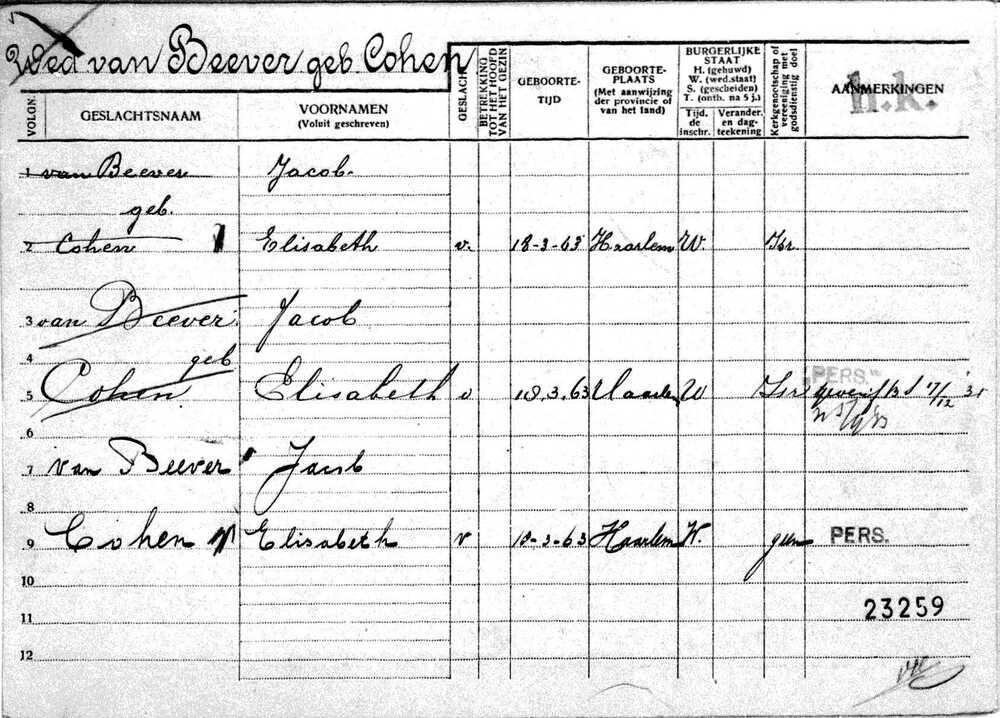 Wed van Beever geb. Cohen
VOLGN. GESLACHTSNAAM VOORNAMEN (Voluit geschreven) GESLACHT BETREKKING TOT HET HOOFD VAN HET GEZIN GEBOORTE-TIJD GEBOORTE-PLAATS (Met aanwijzing der provincie of van het land) BURGERLIJKE STAAT H. (gehuwd) W. (wed.staat) S. (gescheiden) T. (ontb. na 5 j.) Tijd. de inschr. Verander. en dag-teekening Kerkgenootschap of vereeniging met godsdienstig doel AANMERKINGEN
h.k.
1 van Beever Jacob.
geb.
2 Cohen Elisabeth v. 18-3-63 Haarlem W. Isr.
3 van Beever Jacob
4 geb
PERS.
5 Cohen Elisabeth v 18.3.63 Haarlem W Isr 17/12 '31
6
7 van Beever Jacob
8
9 Cohen Elisabeth v 18-3-63 Haarlem W. geen PERS.
10
11 23259
12